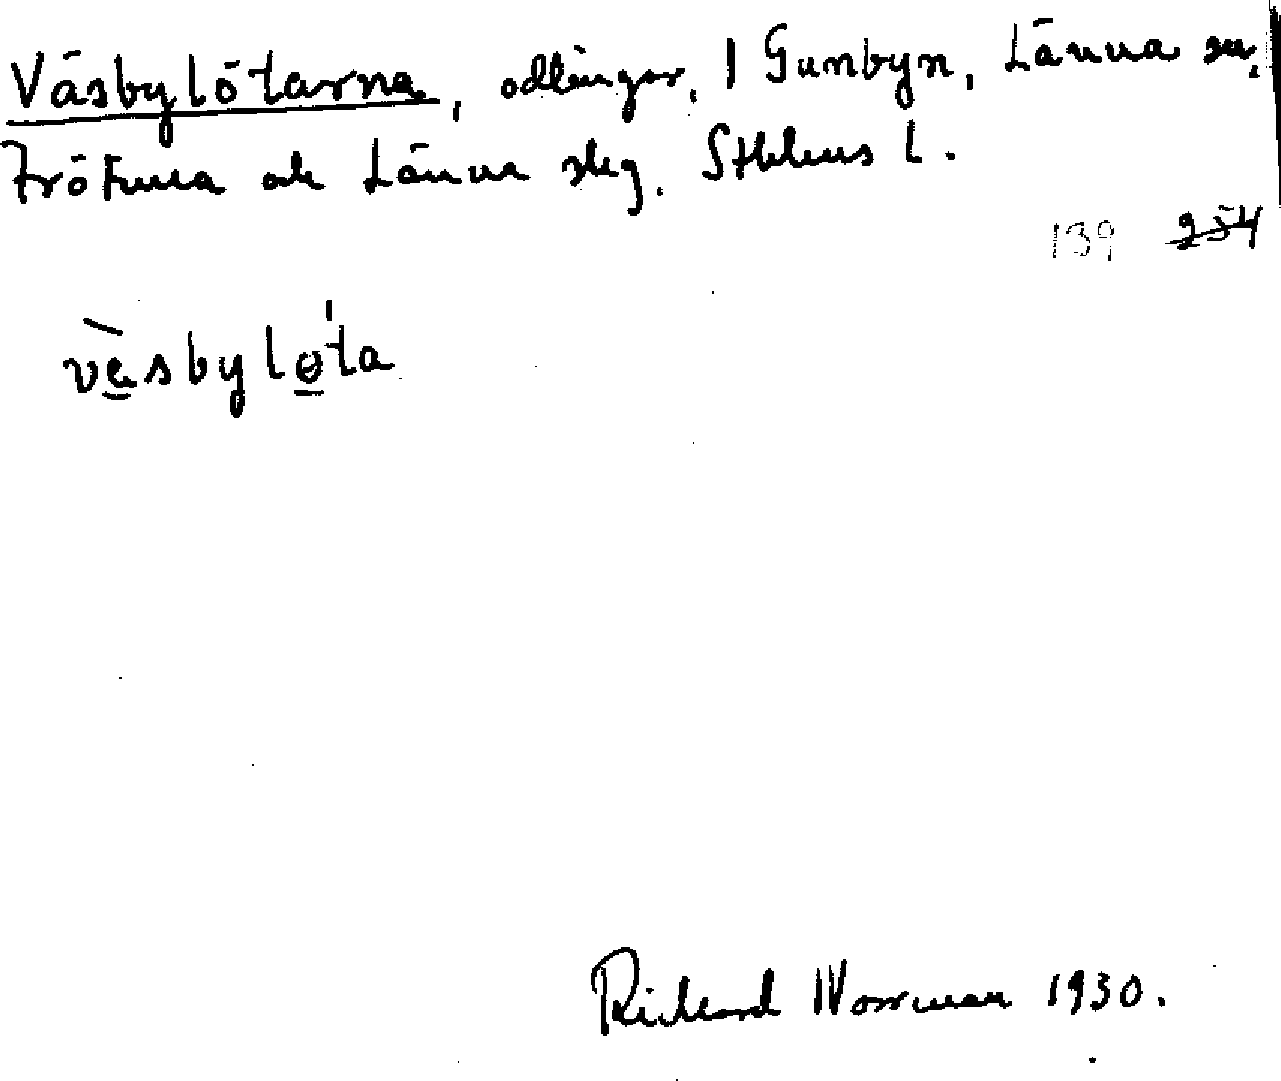 Väsbylötarna, odlingar, 1 Gunbyn, Länna sn,
Frötuna och Länna slg. Sthlms l.
139 254
väsbyløta
Richard Norrman 1930.